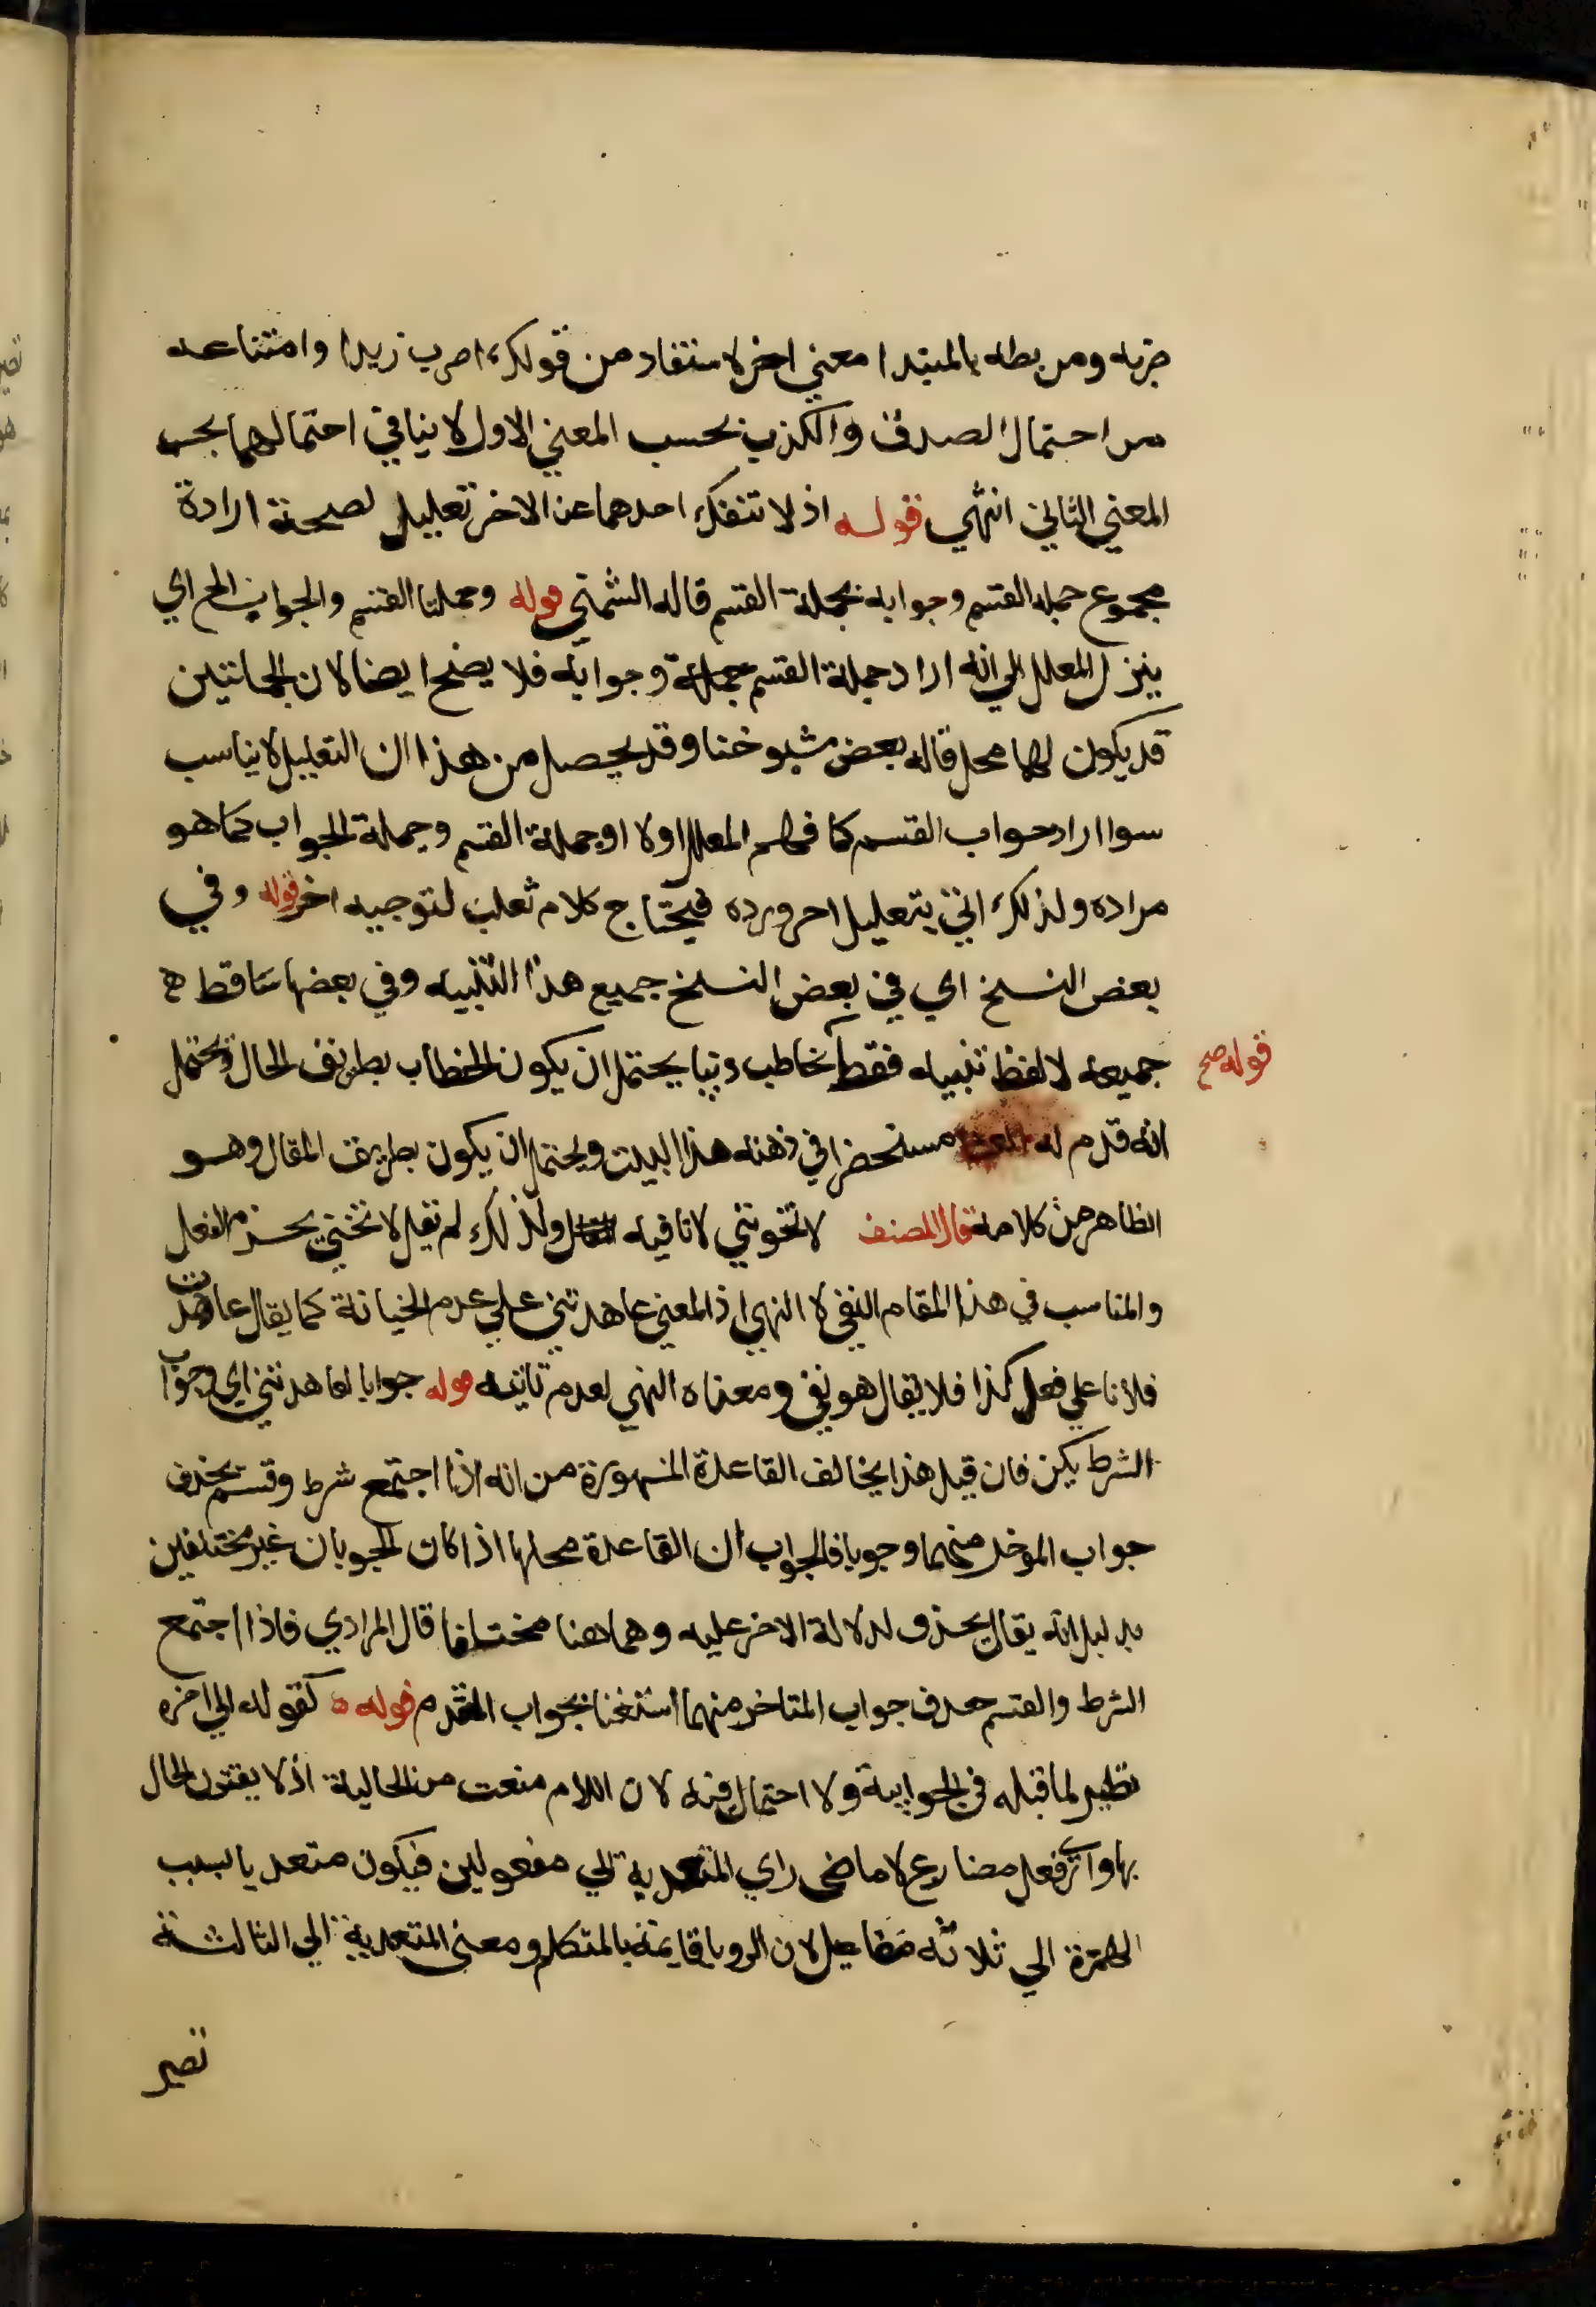 جزيه ومربطه بالمبتدا معني اخر لاستفاد من قولك اضرب زيدا وامتناعه
من احتمال الصدق والكذب بحسب المعني الاول لا ينافي احتمالهما بحسب
المعني الثاني انتهي قوله اذ لا تنفك احدهما عن الاخر تعليل لصحة ارادة
مجموع جملة القسم وجوابه بجملة القسم قاله الشمني قوله وجملتا القسم والجواب الخ اي
ينزل المعلل الي انه اراد جملة القسم جملة وجوابه فلا يصح ايضا لان الجملتين
قد يكون لهما محل قاله بعض شيوخنا وقد يحصل من هذا ان التعليل لا يناسب
سوا اراد جواب القسم كما فهم المعلل اولا او جملة القسم وجملة الجواب كما هو
مراده ولذلك اتي بتعليل اخر ورده فيحتاج كلام ثعلب لتوجيه اخر قوله وفي
بعض النسخ اي في بعض النسخ جميع هذا التنبيه وفي بعضها ساقط ه
قوله صح
جميعه لا لفظ تنبيه فقط يخاطب ديبا يحتمل ان يكون الخطاب بطريق الحال ويحتمل
انه قدم له مستحضرا في ذهنه هذا البيت ويحتمل ان يكون بطريق المقال وهو
الظاهر من كلامه قال المصنف لا تخونني لا نافيه ولذلك لم يقل لا تخني بحذم الفعل
والمناسب في هذا المقام النفي لا النهي اذ المعني عاهدتني علي عدم الخيانة كما يقال عاهدت
فلانا علي فعل كذا فلا يقال هو نفي ومعناه النهي لعدم تاتيه قوله جوابا لعاهدتني اي وجواب
الشرط يكن فان قيل هذا يخالف القاعدة المشهورة من انه اذا اجتمع شرط وقسم يحذف
جواب الموخر منهما وجوبا فالجواب ان القاعدة محلها اذا كان الجوبان غير مختلفين
بدليل انه يقال يحذف لدلالة الاخر عليه وهما هنا مختلفا قال المرادي فاذا اجتمع
الشرط والقسم حذف جواب المتاخر منهما استغنا بجواب المتقدم قوله ه كقوله الي اخره
نظير لما قبله في الجوابية ولا احتمال فيه لان اللام منعت من الحالية اذ لا يقترن الحال
بها وارى فعل مضارع لا ماضي راي المتعدية الي مفعولين فيكون متعديا بسبب
الهمزة الي ثلاثه مفاعيل لان الرويا قايمة بالمتكلم ومعني المتعدية الي الثالثة
تصير